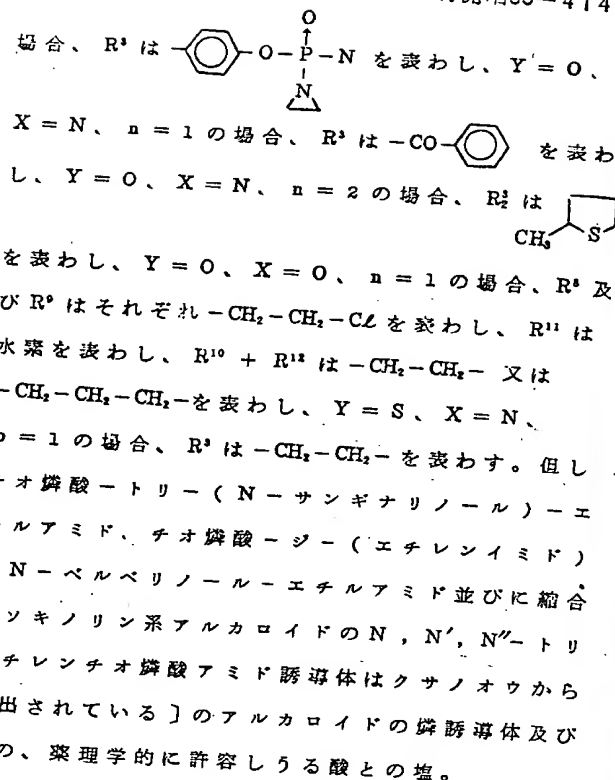 場合、R³ は -O-P-N を表わし、Y = O、
O
N
X = N、n = 1 の場合、R³ は -CO- を表わ
し、Y = O、X = N、n = 2 の場合、R³₂ は
CH₃ S
を表わし、Y = O、X = O、n = 1 の場合、R⁸ 及
び R⁹ はそれぞれ -CH₂-CH₂-Cℓ を表わし、R¹¹ は
水素を表わし、R¹⁰ + R¹² は -CH₂-CH₂- 又は
-CH₂-CH₂-CH₂-を表わし、Y = S、X = N、
= 1 の場合、R³ は -CH₂-CH₂- を表わす。但し
オ燐酸ートリー(Nーサンギナリノール)ーエ
ルアミド、チオ燐酸ージー(エチレンイミド)
Nーベルベリノールーエチルアミド並びに縮合
ソキノリン系アルカロイドのN , N′, N″ートリ
チレンチオ燐酸アミド誘導体はクサノオウから
出されている〕のアルカロイドの燐誘導体及び
の、薬理学的に許容しうる酸との塩。